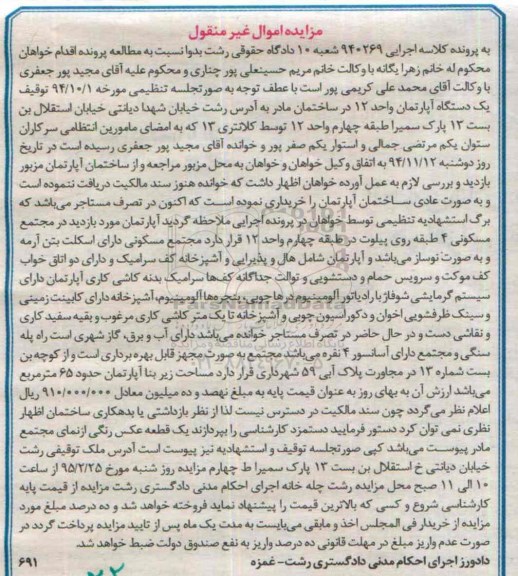 مزایده اموال غیر منقول
به پرونده کلاسه اجرایی ۹۴۰۲۶۹ شعبه ۱۰ دادگاه حقوقی رشت بدوا نسبت به مطالعه پرونده اقدام خواهان
محکوم له خانم زهرا یگانه با وکالت خانم مریم حسینعلی پور چناری و محکوم علیه آقای مجید پور جعفری
با وکالت آقای محمد علی کریمی پور است با عطف توجه به صورتجلسه تنظیمی مورخه ۹۴/۱۰/۱ توقیف
یک دستگاه آپارتمان واحد ۱۲ در ساختمان مادر به آدرس رشت خیابان شهدا دیانتی خیابان استقلال بن
بست ۱۳ پارک سمیرا طبقه چهارم واحد ۱۲ توسط کلانتری ۱۳ که به امضای مامورین انتظامی سرکاران
ستوان یکم مرتضی جمالی و استوار یکم صفر پور و خوانده آقای مجید پور جعفری رسیده است در تاریخ
روز دوشنبه ۹۴/۱۱/۱۲ به اتفاق وکیل خواهان و خواهان به محل مزبور مراجعه و از ساختمان آپارتمان مزبور
بازدید و بررسی لازم به عمل آورده خواهان اظهار داشت که خوانده هنوز سند مالکیت دریافت ننموده است
و به صورت عادی ساختمان آپارتمان را خریداری نموده است که اکنون در تصرف مستاجر می‌باشد که
برگ استشهادیه تنظیمی توسط خواهان در پرونده اجرایی ملاحظه گردید آپارتمان مورد بازدید در مجتمع
مسکونی ۴ طبقه روی پیلوت در طبقه چهارم واحد ۱۲ قرار دارد مجتمع مسکونی دارای اسکلت بتن آرمه
و به صورت نوساز می‌باشد و آپارتمان شامل هال و پذیرایی و آشپزخانه کف سرامیک و دارای دو اتاق خواب
کف موکت و سرویس حمام و دستشویی و توالت جداگانه کف‌ها سرامیک بدنه کاشی کاری آپارتمان دارای
سیستم گرمایشی شوفاژ با رادیاتور آلومینیوم درها چوبی، پنجره‌ها آلومینیوم، آشپزخانه دارای کابینت زمینی
و سینک ظرفشویی اخوان و دکوراسیون چوبی و آشپزخانه تا یک متر کاشی کاری مرغوب و بقیه سفید کاری
و نقاشی دست و در حال حاضر در تصرف مستاجر خوانده می‌باشد دارای آب و برق، گاز شهری است راه پله
سنگی و مجتمع دارای آسانسور ۴ نفره می‌باشد مجتمع به صورت مجهز قابل بهره برداری است و از کوچه بن
بست شماره ۱۳ در مجاورت پلاک آبی ۵۹ شهرداری قرار دارد مساحت زیر بنا آپارتمان حدود ۶۵ مترمربع
می‌باشد ارزش آن به بهای روز به عنوان قیمت پایه به مبلغ نهصد و ده میلیون معادل ۹۱۰/۰۰۰/۰۰۰ ریال
اعلام نظر می‌گردد چون سند مالکیت در دسترس نیست لذا از نظر بازداشتی یا بدهکاری ساختمان اظهار
نظری نمی توان کرد دستور فرمایید دستمزد کارشناسی را بپردازند یک قطعه عکس رنگی از نمای مجتمع
مادر پیوست می‌باشد کپی صورتجلسه توقیف و استشهادیه نیز پیوست است آدرس ملک توقیفی رشت
خیابان دیانتی خ استقلال بن بست ۱۳ پارک سمیرا ط چهارم مزایده روز شنبه مورخ ۹۵/۲/۲۵ از ساعت
۱۰ الی ۱۱ صبح محل مزایده رشت چله خانه اجرای احکام مدنی دادگستری رشت مزایده از قیمت پایه
کارشناسی شروع و کسی که بالاترین قیمت را پیشنهاد نماید فروخته خواهد شد و ده درصد مبلغ مورد
مزایده از خریدار فی المجلس اخذ و مابقی می‌بایست به مدت یک ماه پس از تایید مزایده پرداخت گردد در
صورت عدم واریز مبلغ در مهلت قانونی ده درصد واریز به نفع صندوق دولت ضبط خواهد شد.
دادورز اجرای احکام مدنی دادگستری رشت - غمزه
۶۹۱
۲۲